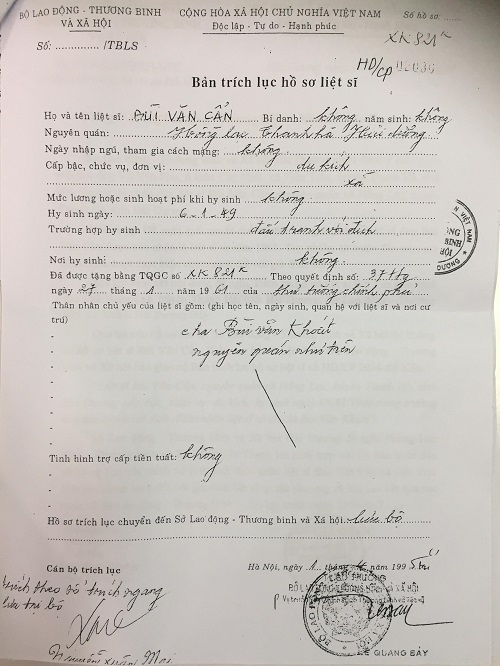 BỘ LAO ĐỘNG - THƯƠNG BINH
VÀ XÃ HỘI
CỘNG HÒA XÃ HỘI CHỦ NGHĨA VIỆT NAM
Độc lập - Tự do - Hạnh phúc
Số hồ sơ:
XK 821K
Số: /TBLS
HD/CP
Bản trích lục hồ sơ liệt sĩ
Họ và tên liệt sĩ: BÙI VĂN CẨN Bí danh: không năm sinh: không
Nguyên quán: Thanh hà Hải dương
Ngày nhập ngũ, tham gia cách mạng: không
Cấp bậc, chức vụ, đơn vị: du kích
xã
Mức lương hoặc sinh hoạt phí khi hy sinh không
Hy sinh ngày: 6-1-49
Trường hợp hy sinh đấu tranh với địch
Nơi hy sinh: không
Đã được tặng bằng TQGC số XK 821K Theo quyết định số: 37 Ttg
ngày 27 tháng 1 năm 1961 của thủ tướng chính phủ
Thân nhân chủ yếu của liệt sĩ gồm: (ghi học tên, ngày sinh, quan hệ với liệt sĩ và nơi cư
trú)
cha Bùi văn Khoát
nguyên quán như trên
Tình hình trợ cấp tiền tuất: không
Hồ sơ trích lục chuyển đến Sở Lao động - Thương binh và Xã hội. lưu bộ
Cán bộ trích lục
Hà Nội, ngày 1 tháng năm 1995
trích theo trích ngang
lưu tại bộ
BỘ LAO ĐỘNG THƯƠNG BINH VÀ XÃ HỘI
QUANG BẢY